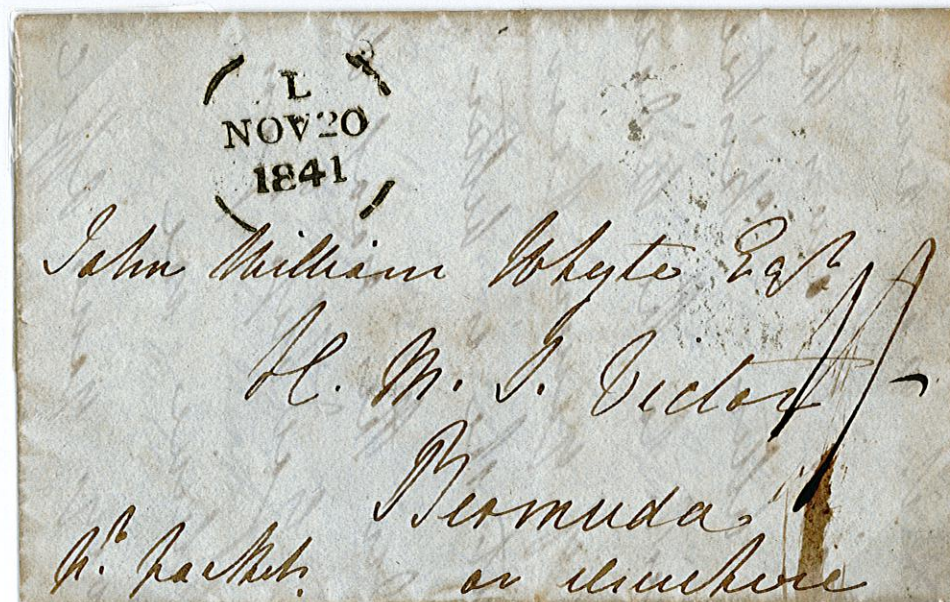 L
NOV 20
1841
John William Whyte Esqr
H. M. S. Victor
Bermuda
pr. packet.
or elsewhere